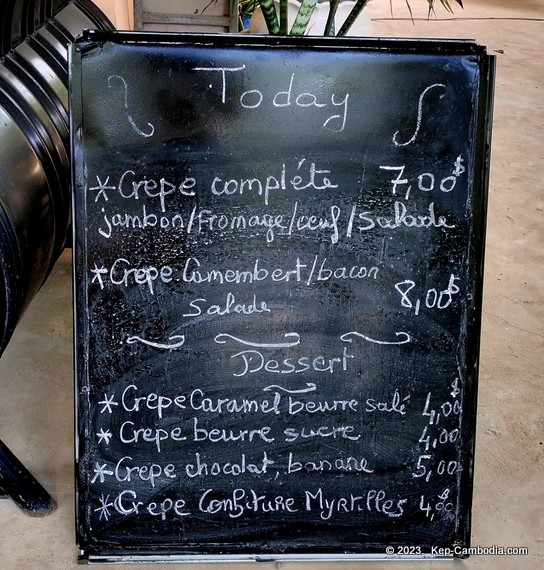 Today
*Crepe compléte 7,00$
jambon/Fromage/oeuf/Salade
*Crepe Camembert/bacon
Salade 8,00$
Dessert
*Crepe Caramel beurre salé 4,00$
*Crepe beurre sucre 4,00
*Crepe chocolat, banane 5,00
*Crepe Confiture Myrtilles 4,00
© 2023 Kep-Cambodia.com